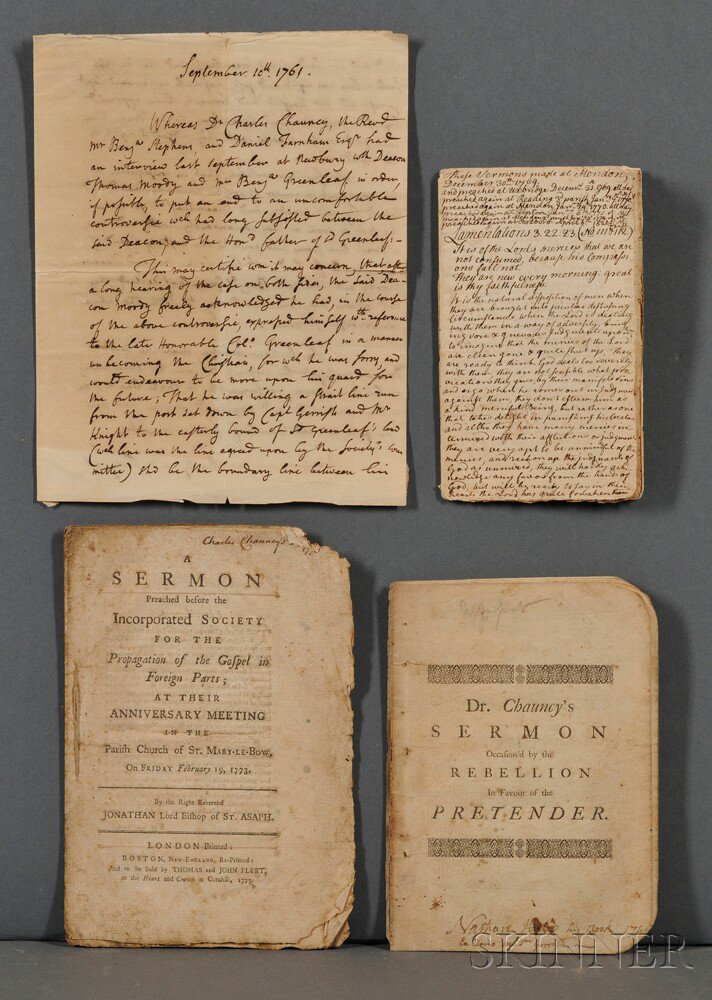 September 10th. 1761.
Whereas Dr Charles Chauncy, the Revd
Mr Benja Stephens and Daniel Farnham Esqr had
an interview last September at Newbury wth Deacon
Thomas Moody and Mr Benja Greenleaf in order,
if possible, to put an end to an uncomfortable
controversie wch had long subsisted between the
said Deacon, and the Hond father of sd Greenleaf:-
This may certifie whom it may concern, that after
a long hearing of the case on both sides, the said Dea-
con Moody freely acknowledged he had, in the course
of the above controversie, expressed himself wth reference
to the late Honorable Colo. Greenleaf in a manner
unbecoming the Christian, for wch he was sorry and
would endeavour to be more upon his guard for
the future; That he was willing a strait line run
from the post set down by Capt Gerrish and Mr
Knight to the easterly bound of sd Greenleaf's land
(wch line was the line agreed upon by the Society's com
mittee) shd be the boundary line between his
These Sermons made at Mendon
December 30th 1769
and preached at Uxbridge
preached again at Reading
preached again at Mendon
Lamentations 3. 22 23
It is of the Lords mercies that we are
not consumed, because his compassi
ons fail not.
They are new every morning: great
is thy faithfulness.
It is the natural disposition of men when
they are brought into peculiar distressing
circumstances when the Lord is dealing
with them in a way of adversity, bring
to imagine that the mercies of the Lord
are clean gone & quite shut up. They
are ready to think God deals too severely
with them
against them, they don't esteem him as
a kind merciful Being, but rather as one
that takes delight in punishing his creatures
and altho they have many mercies in
termixed with their afflictions or judgments
they are very apt to be unmindful of the
mercies, and reckon up the judgments of
God as unnumbered, they will hardly ack
nowledge any favour from the hand of
God, but will be ready to say in their
hearts the Lord has
Charles Chauncy's
A
SERMON
Preached before the
Incorporated SOCIETY
FOR THE
Propagation of the Gospel in
Foreign Parts;
AT THEIR
ANNIVERSARY MEETING
IN THE
Parish Church of ST. MARY-LE-BOW,
On FRIDAY February 19, 1773.
By the Right Reverend
JONATHAN Lord Bishop of ST. ASAPH.
LONDON Printed:
BOSTON, NEW-ENGLAND, Re-Printed:
And to be Sold by THOMAS and JOHN FLEET,
at the Heart and Crown in Cornhill, 1773.
Dr. Chauncy's
SERMON
Occasion'd by the
REBELLION
In Favour of the
PRETENDER.
Nathan his Book
SKINNER